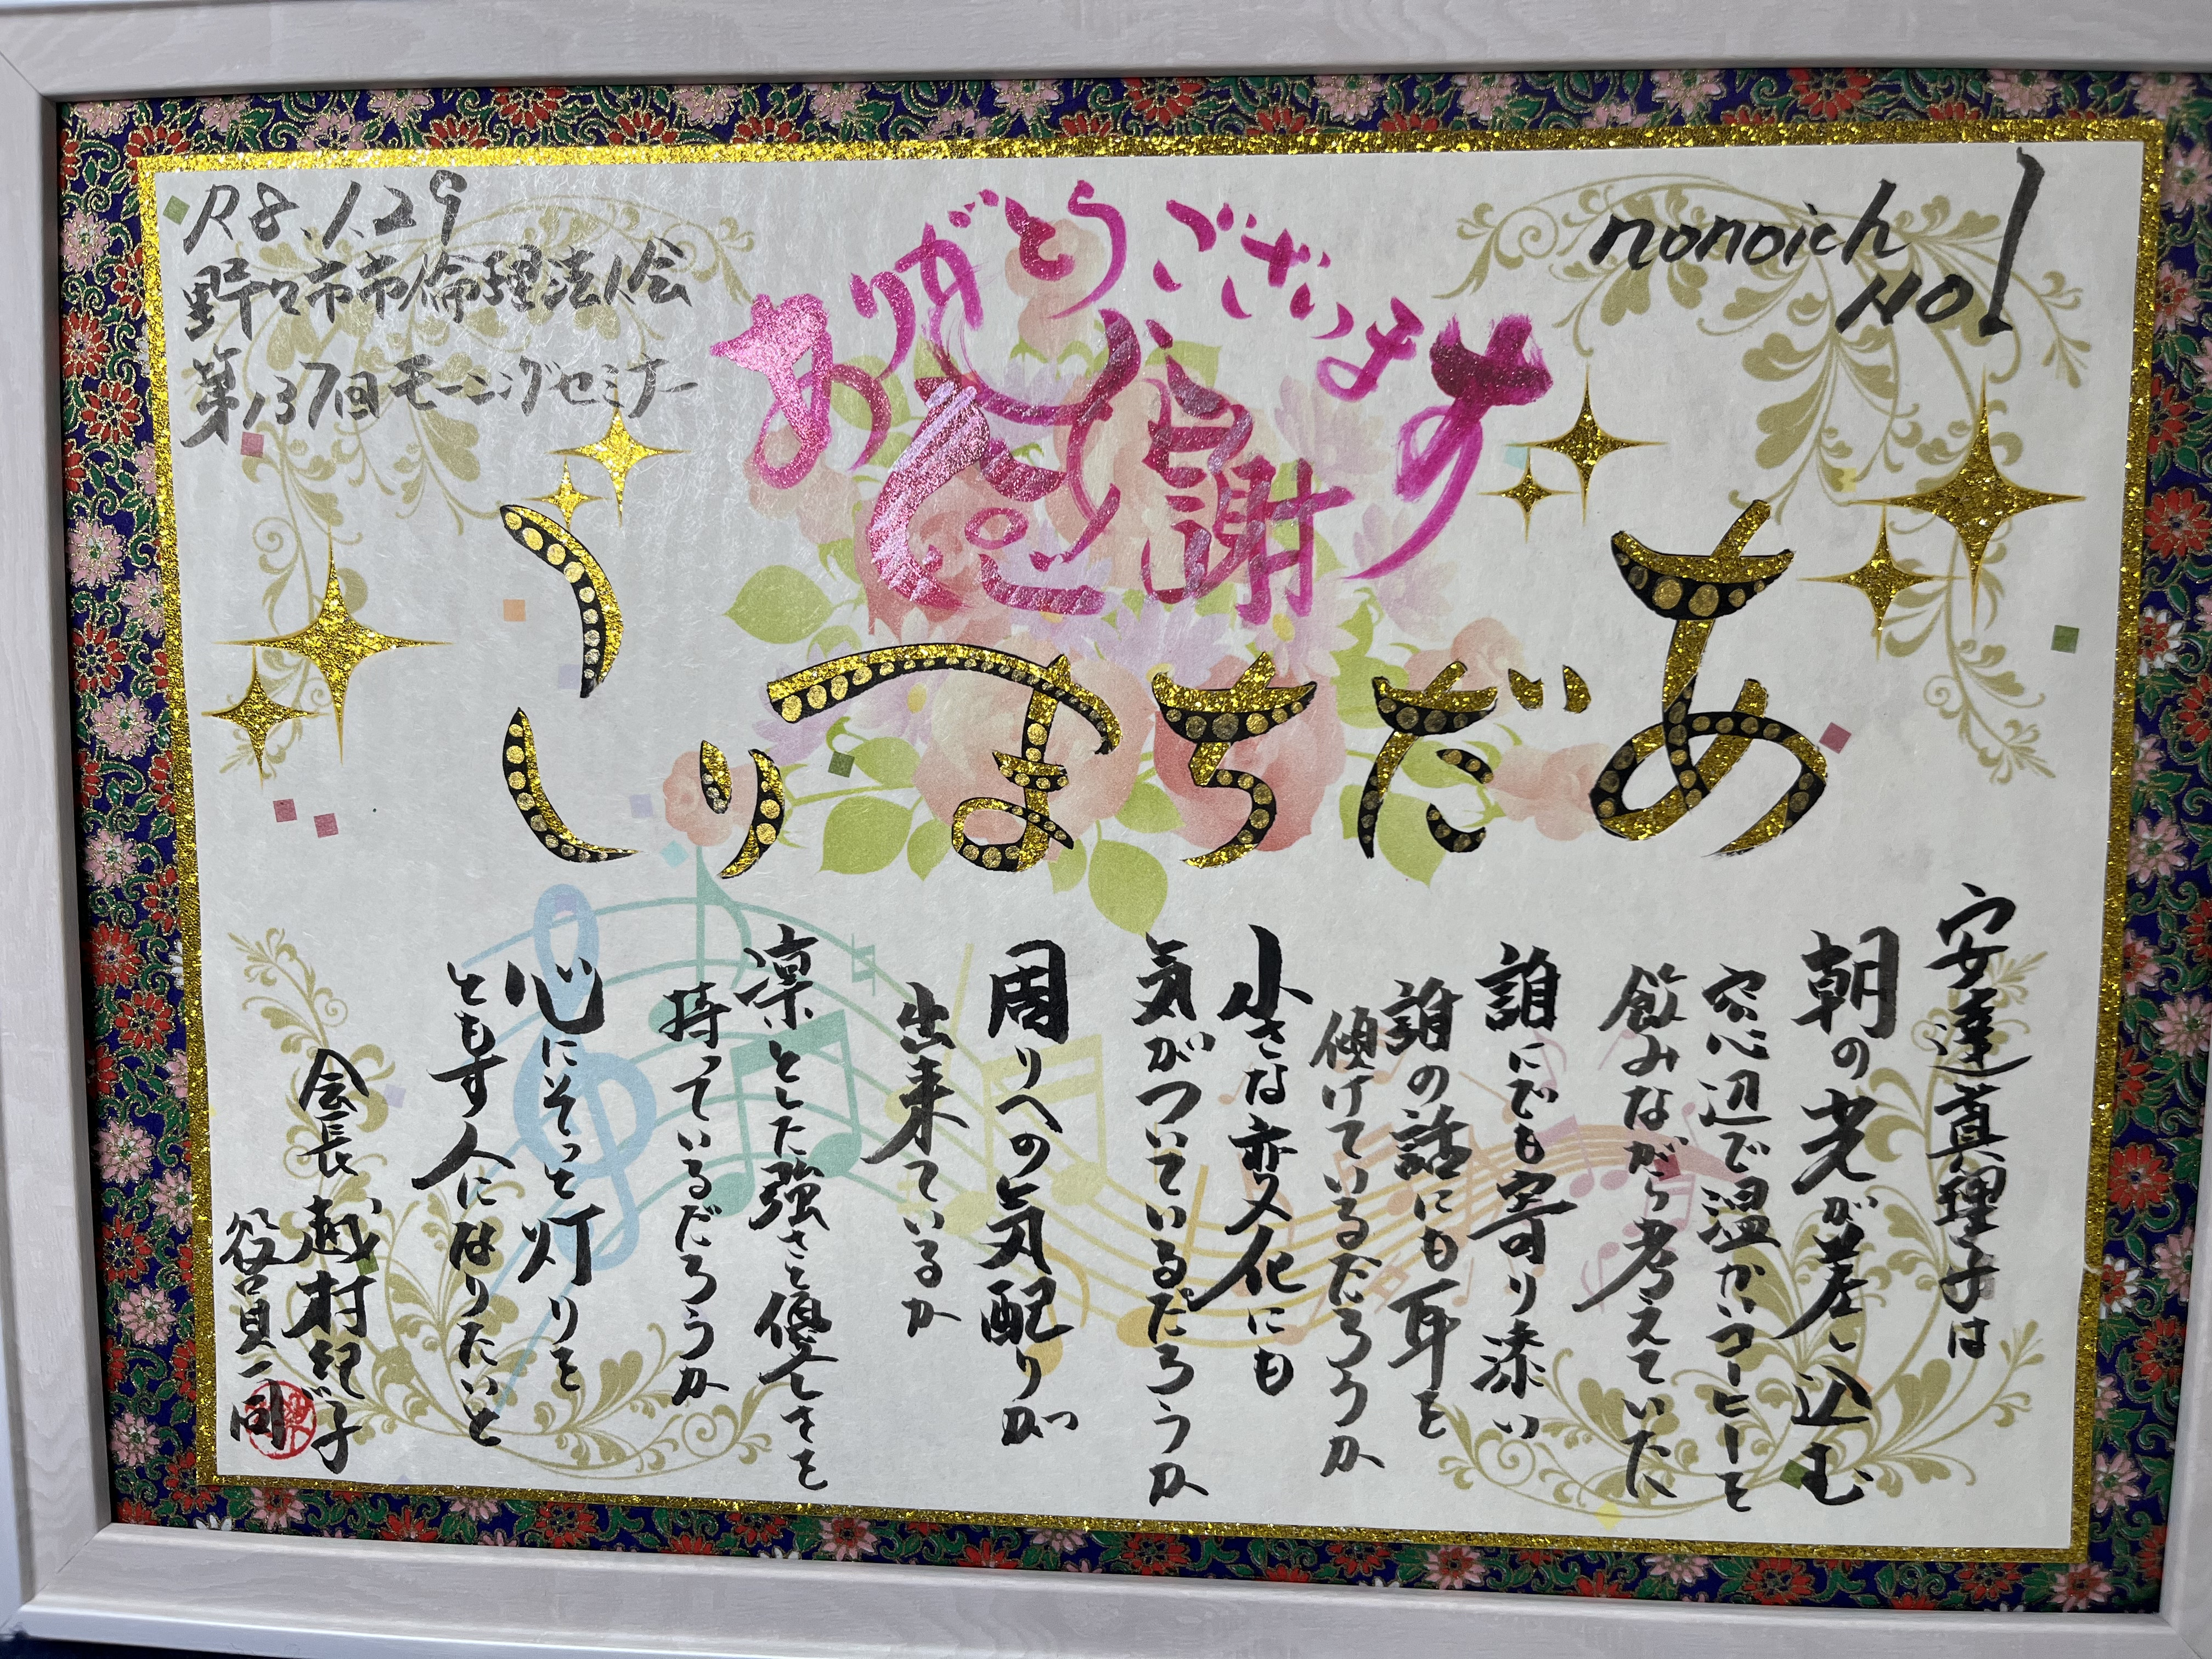 R8.1.29
野々市市倫理法人会
第137回モーニングセミナー
ありがとうございます
感謝
nonoich
NO1
あだちまりこ
安達真理子は
朝の光が差し込む
窓辺で温かいコーヒーを
飲みながら考えていた
誰にでも寄り添い
誰の話にも耳を
傾けているだろうか
小さな変化にも
気がついているだろうか
周りへの気配りが
出来ているか
凛とした強さと優しさを
持っているだろうか
心にそっと灯りを
ともす人になりたいと
会長 越村
役員一同